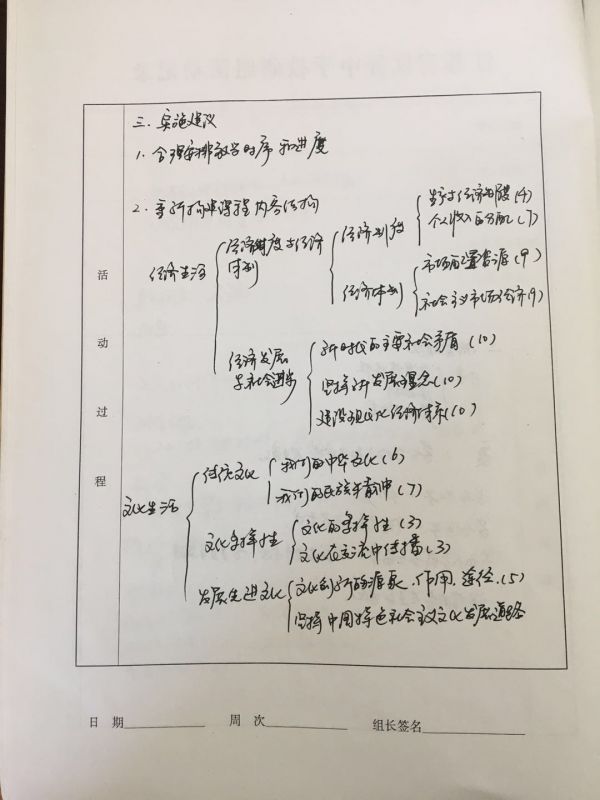 三. 实施建议
1. 合理安排教学时序和进度
2. 重新构建课程内容结构
经济生活
经济制度与经济体制
经济制度
生产与经济制度(4)
个人收入的分配(7)
经济体制
市场配置资源(9)
社会主义市场经济(9)
经济发展与社会进步
新时代的主要社会矛盾(10)
坚持新发展理念(10)
建设现代化经济体系(10)
文化生活
传统文化
我们的中华文化(6)
我们的民族精神(7)
文化多样性
文化的多样性(3)
文化在交流中传播(3)
发展先进文化
文化创新的源泉、作用、途径(5)
坚持中国特色社会主义文化发展道路
活动过程
日 期 周 次 组长签名